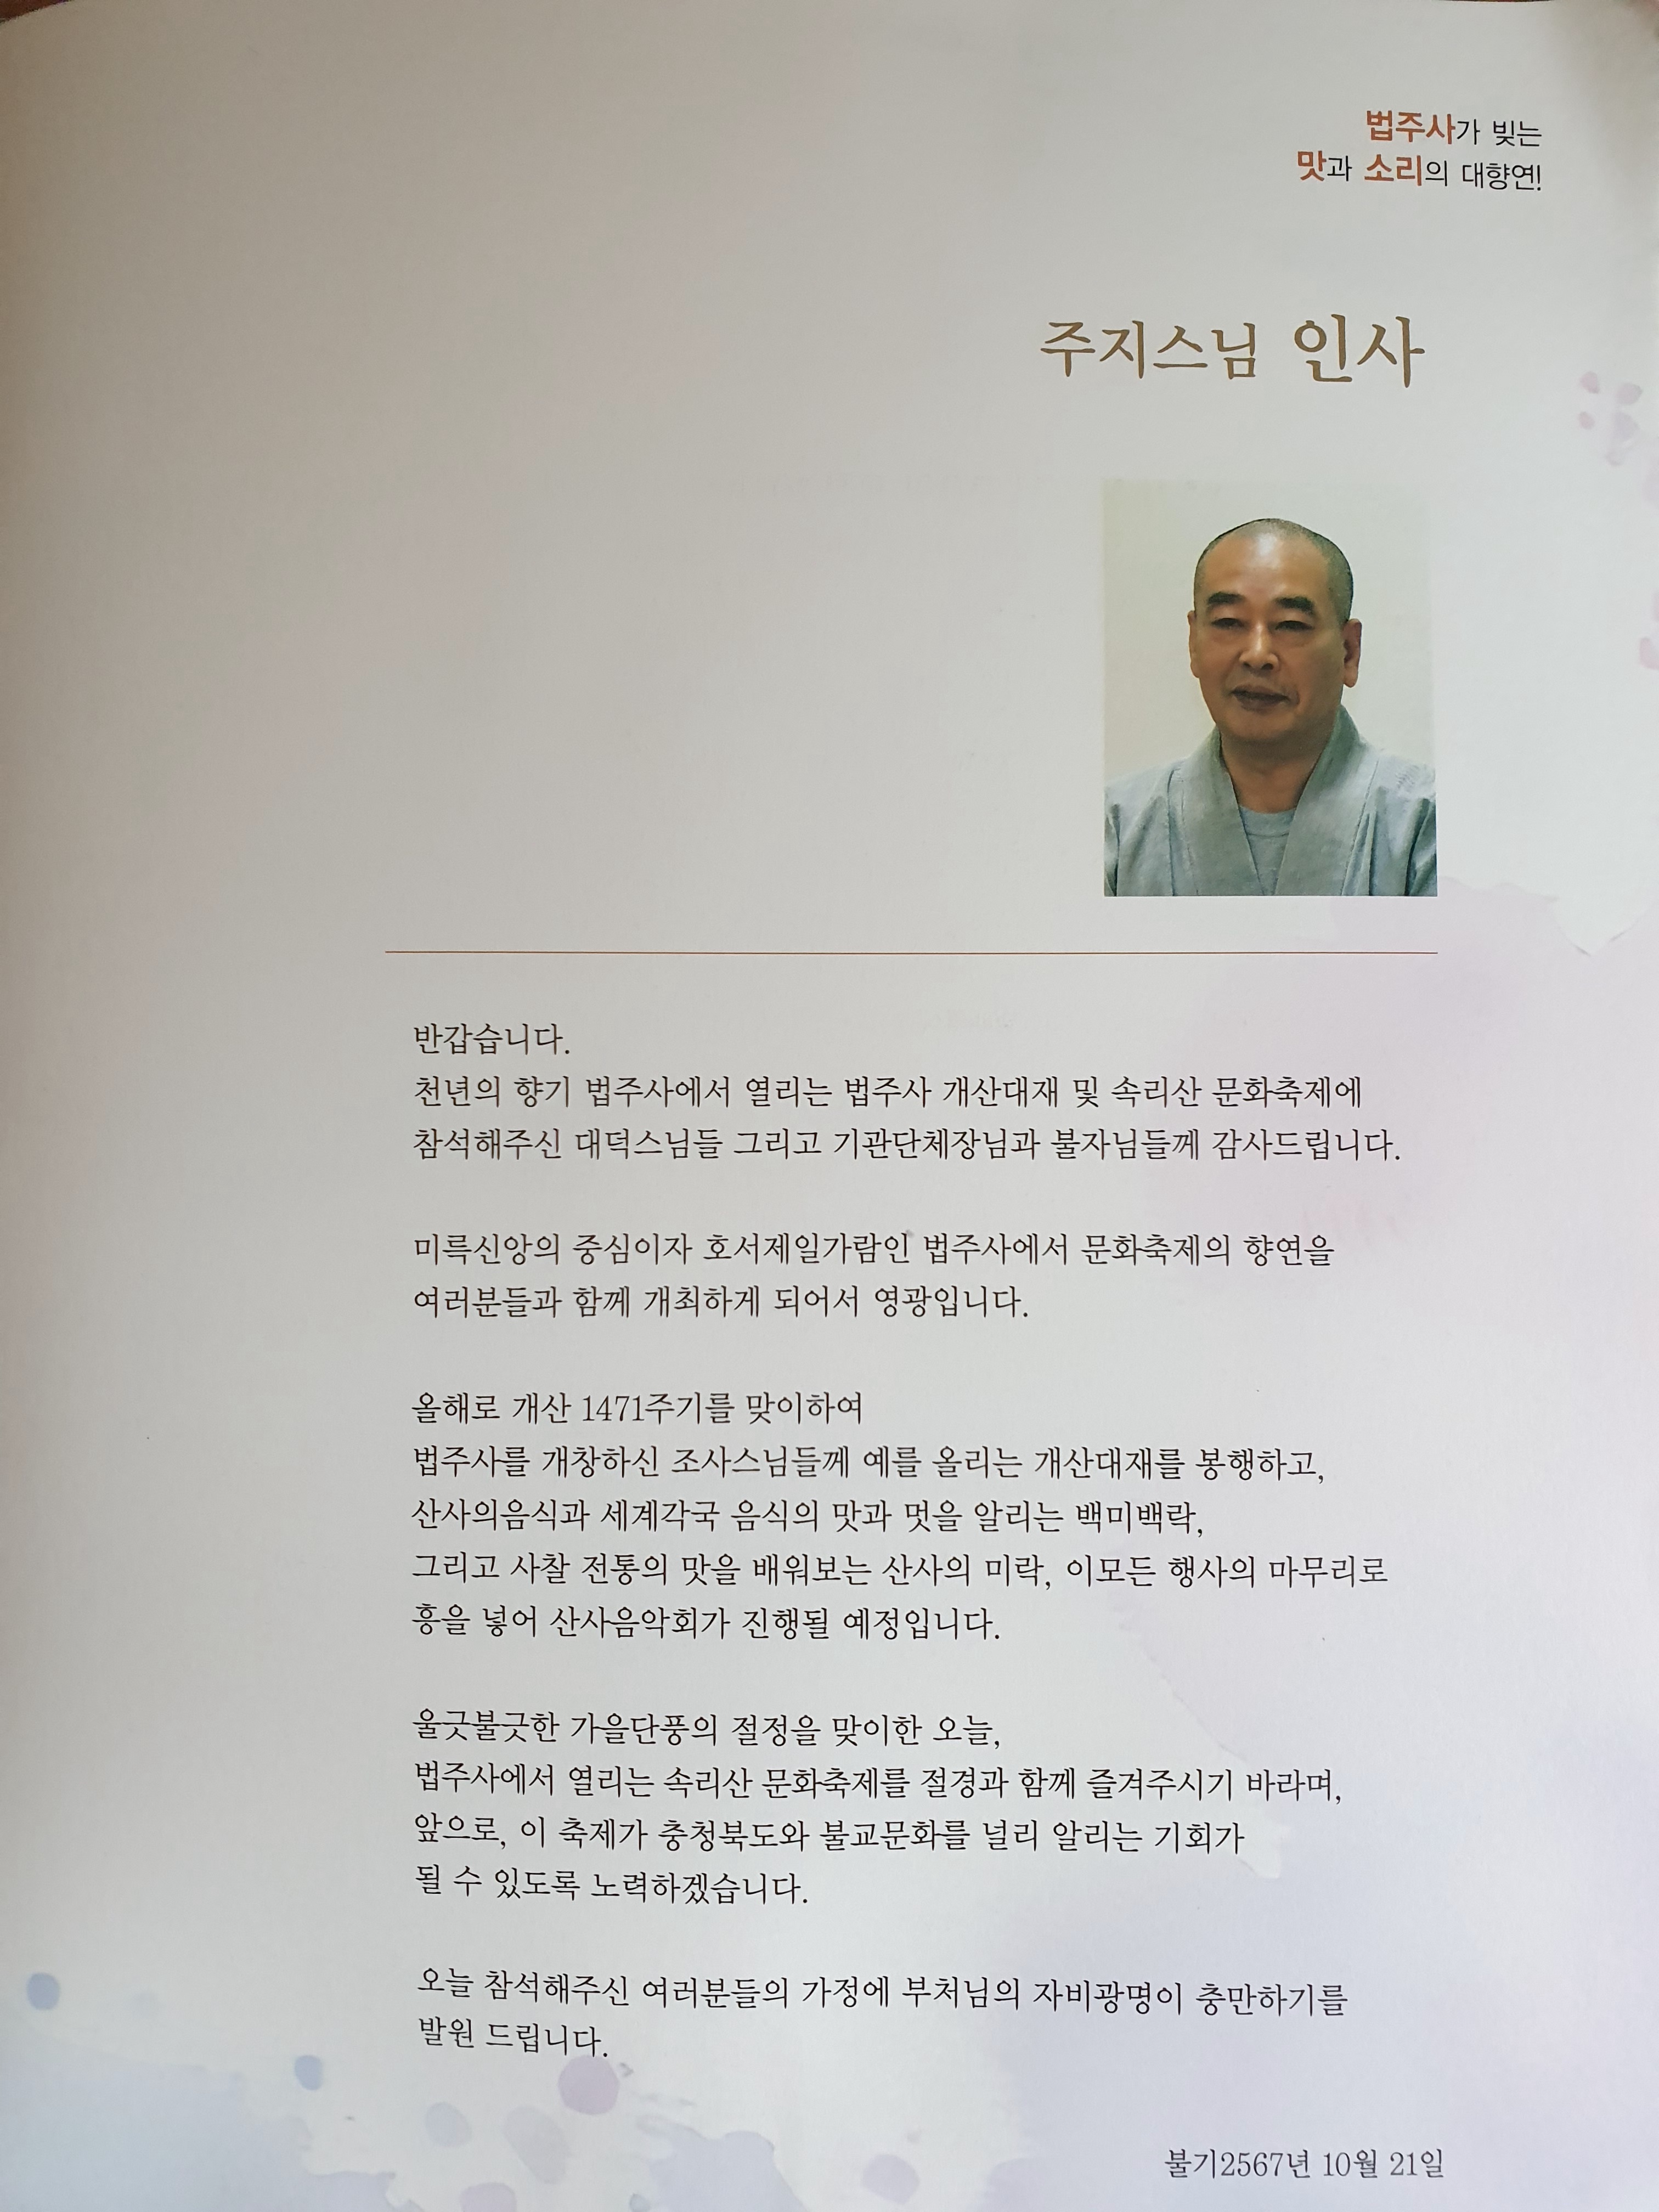 법주사가 빚는
맛과 소리의 대향연!
주지스님 인사
반갑습니다.
천년의 향기 법주사에서 열리는 법주사 개산대재 및 속리산 문화축제에
참석해주신 대덕스님들 그리고 기관단체장님과 불자님들께 감사드립니다.
미륵신앙의 중심이자 호서제일가람인 법주사에서 문화축제의 향연을
여러분들과 함께 개최하게 되어서 영광입니다.
올해로 개산 1471주기를 맞이하여
법주사를 개창하신 조사스님들께 예를 올리는 개산대재를 봉행하고,
산사의음식과 세계각국 음식의 맛과 멋을 알리는 백미백락,
그리고 사찰 전통의 맛을 배워보는 산사의 미락, 이모든 행사의 마무리로
흥을 넣어 산사음악회가 진행될 예정입니다.
울긋불긋한 가을단풍의 절정을 맞이한 오늘,
법주사에서 열리는 속리산 문화축제를 절경과 함께 즐겨주시기 바라며,
앞으로, 이 축제가 충청북도와 불교문화를 널리 알리는 기회가
될 수 있도록 노력하겠습니다.
오늘 참석해주신 여러분들의 가정에 부처님의 자비광명이 충만하기를
발원 드립니다.
불기2567년 10월 21일